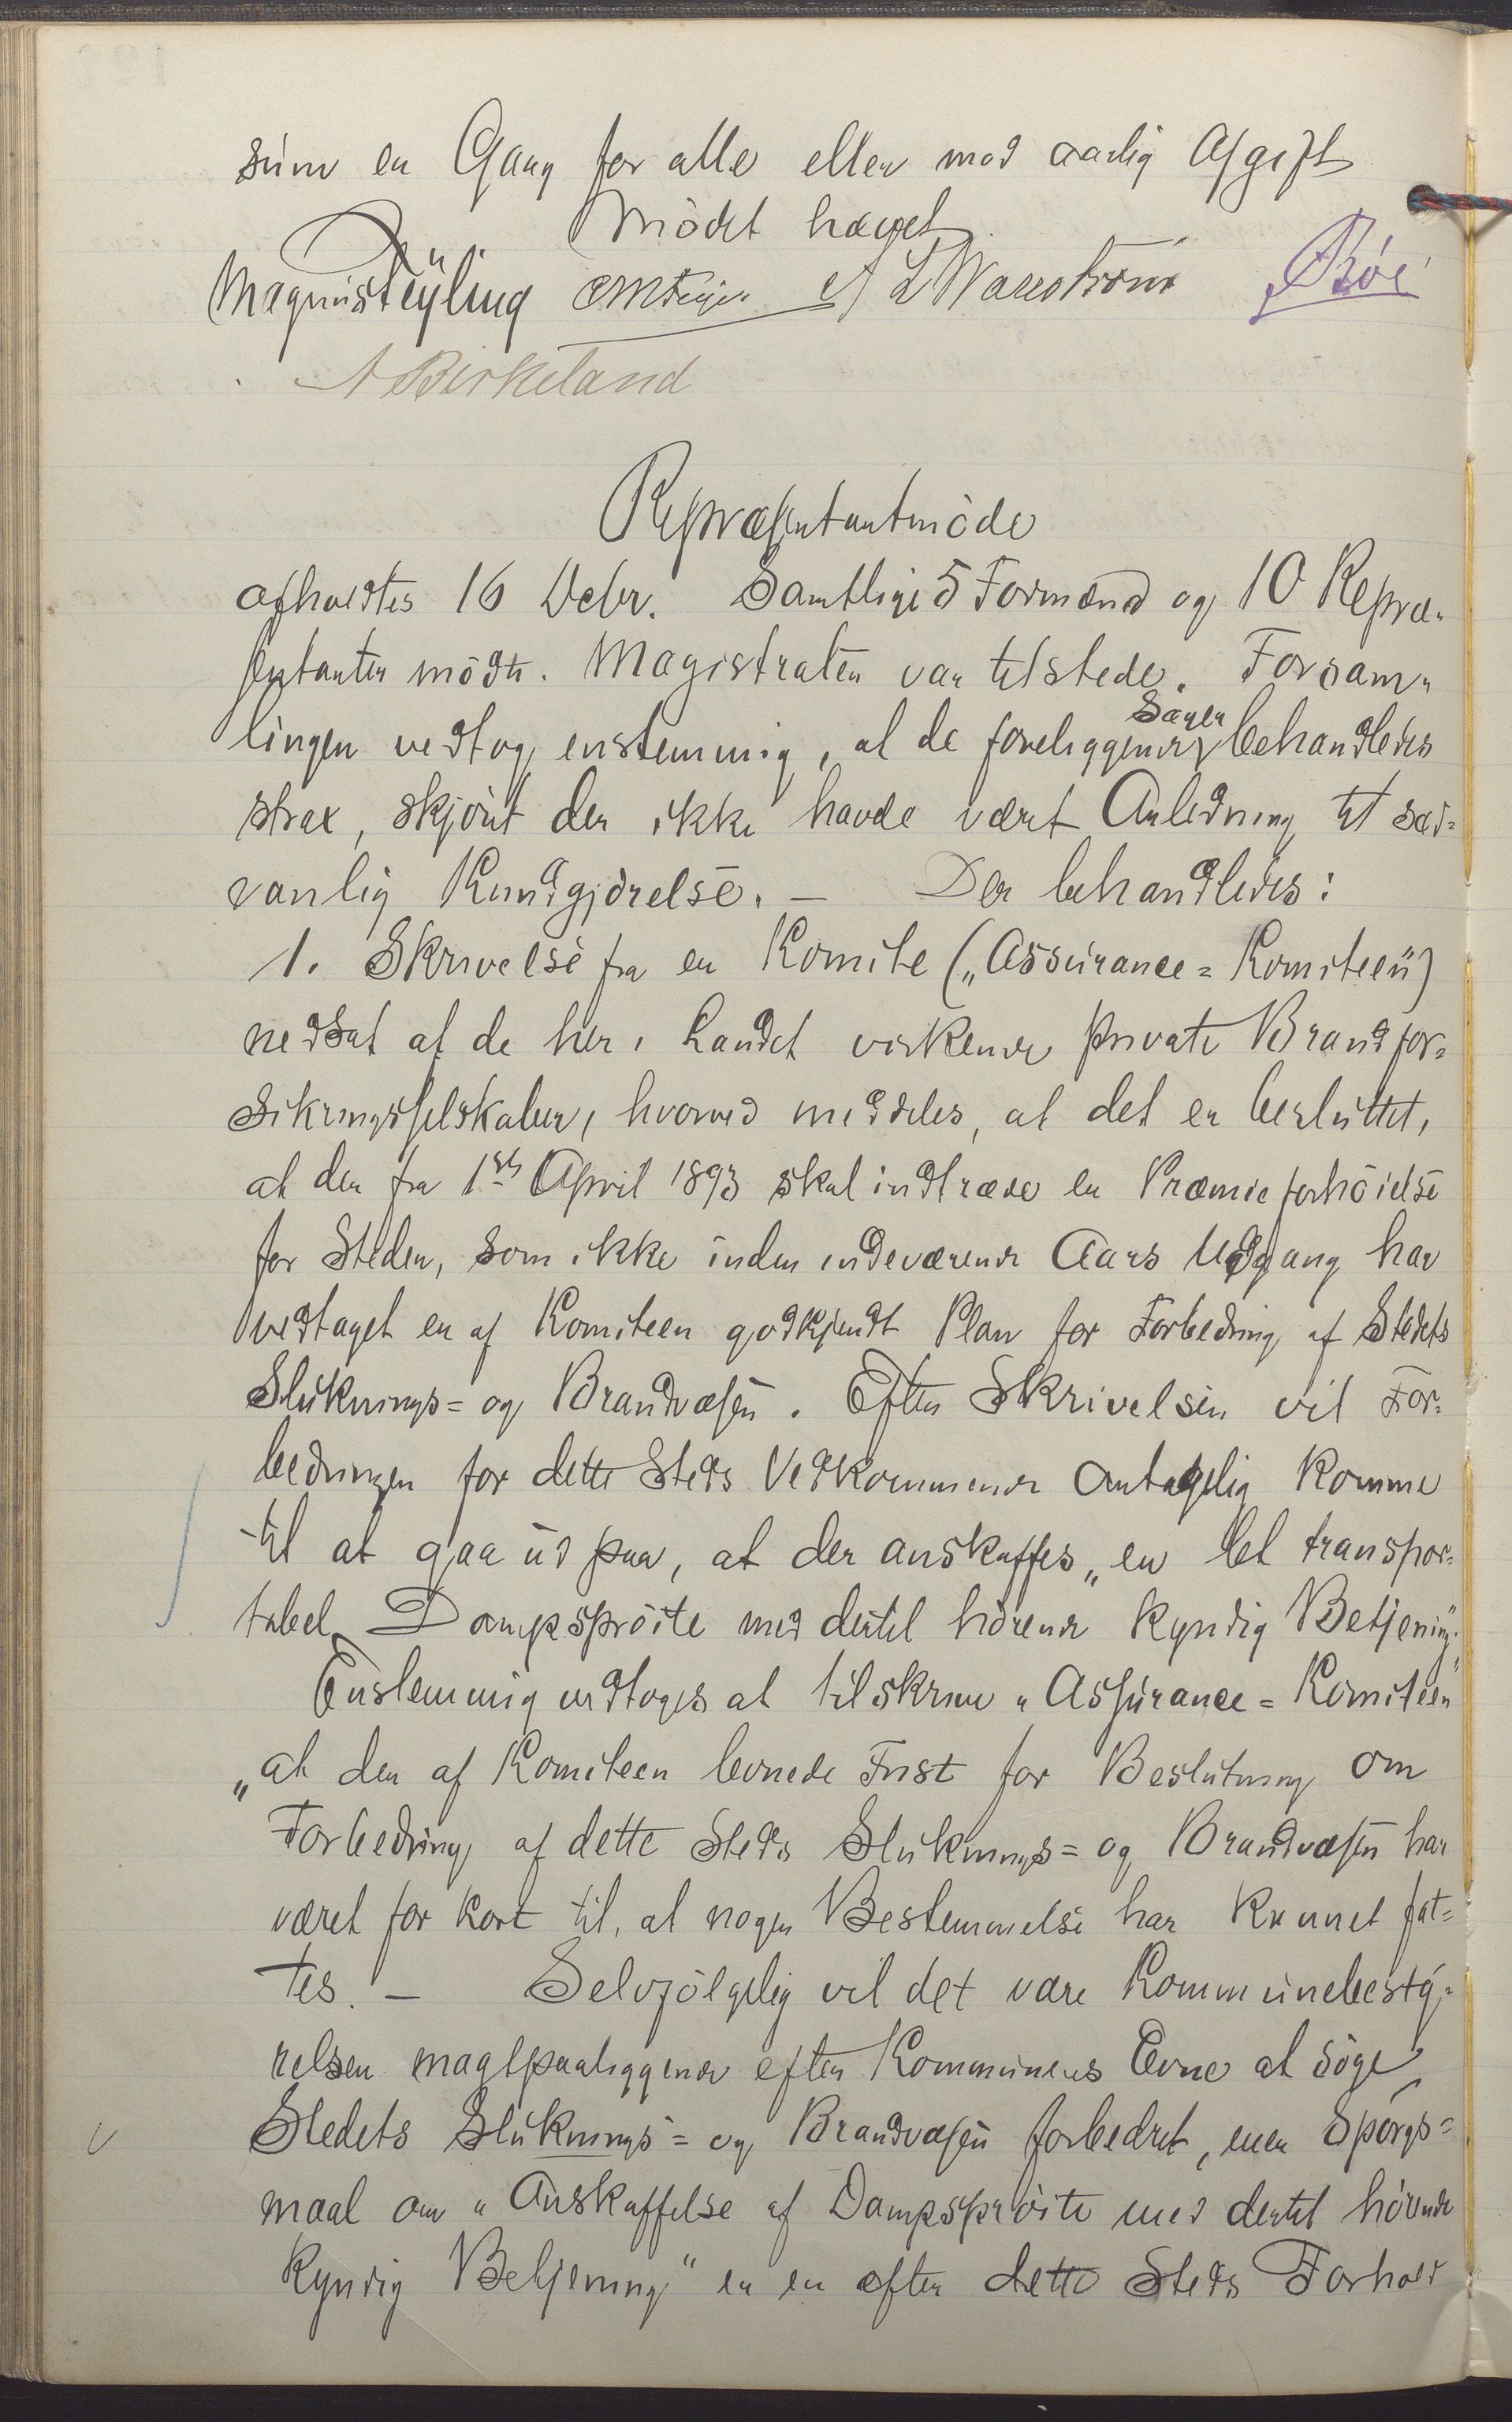 sum en Gang for alle eller mod aarlig Afgift
Mödet hævet
Magnus Teÿling A L Warestrøm Böe
A Birkeland
Repræsentantmöde
afholdtes 16 Decbr. Samtlige 5 Formænd og 10 Repræ-
sentanter mödte. Magistraten var tilstede. Forsam-
lingen vedtog enstemmig, at de foreliggende Sager behandledes
strax, skjönt der ikke havde været Anledning til sæd-
vanlig Kundgjörelse. — Der behandledes:
1. Skrivelse fra en Komite („Assurance-Komiteen“)
nedsat af de her i Landet virkende private Brandfor-
sikringsselskaber, hvorved meddeles, at det er besluttet,
at der fra 1ste April 1893 skal indtræde en Præmieforhöielse
for Steder, som ikke inden indeværende Aars Udgang har
vedtaget en af Komiteen godkjendt Plan for Forbedring af Stedets
Sluknings- og Brandvæsen. Efter Skrivelsen vil For-
bedringen for dette Steds Vedkommende antagelig komme
til at gaa ud paa, at der anskaffes „en let transpor-
tabel Dampspröite med dertil hörende kyndig Betjening“.
Enstemmig vedtoges at tilskrive „Assurance-Komiteen“
„at den af Komiteen levnede Frist for Beslutning om
Forbedring af dette Steds Sluknings- og Brandvæsen har
været for kort til, at nogen Bestemmelse har kunnet fat-
tes. — Selvfölgelig vil det være Kommunebesty-
relsen magtpaaliggende efter Kommunens Evne at söge
Stedets Sluknings- og Brandvæsen forbedret, men Spörgs-
maal om „Anskaffelse af Dampspröite med dertil hörende
kyndig Betjening“ er en efter dette Steds Forhold